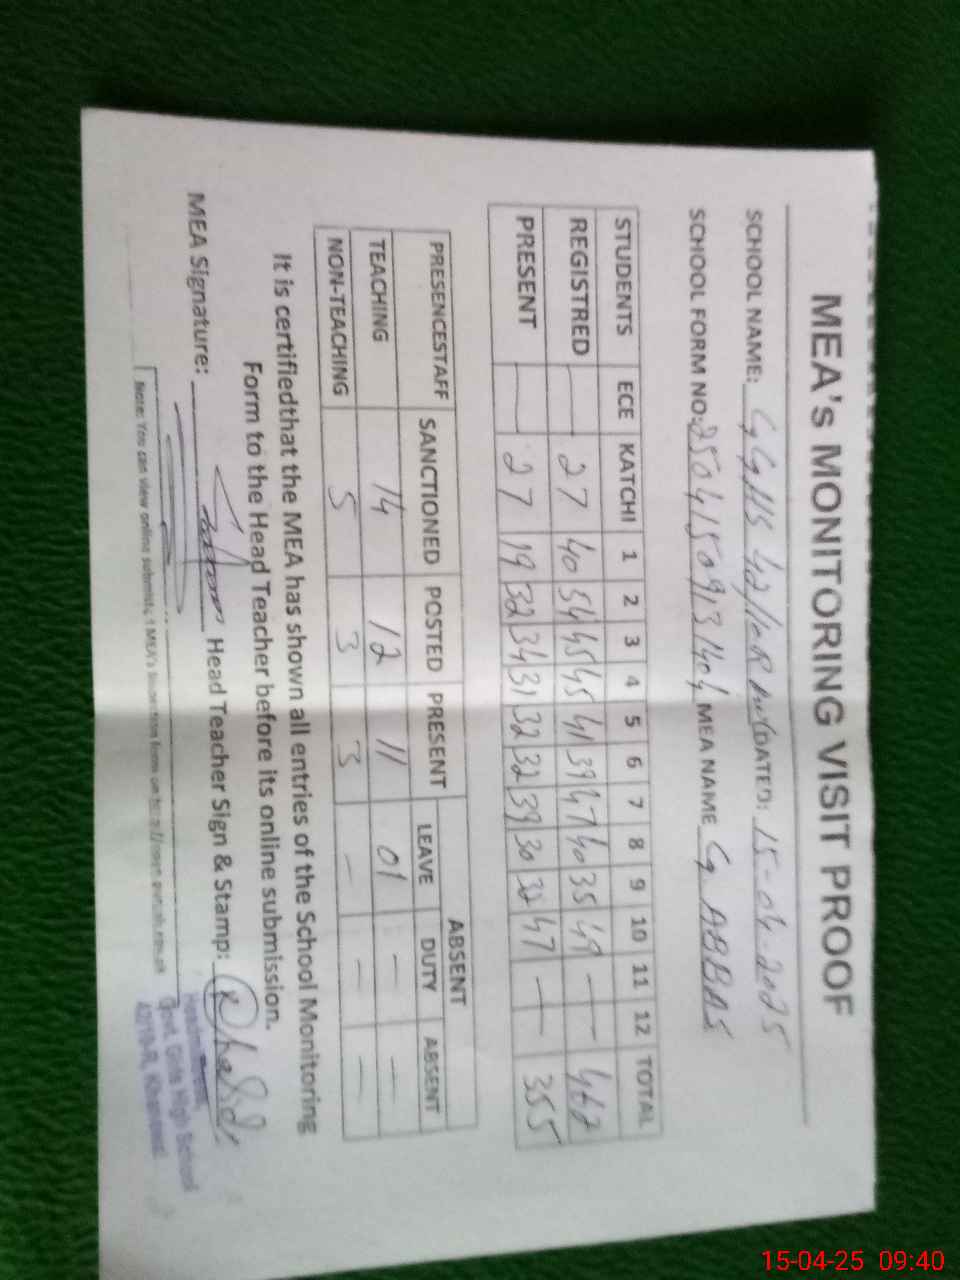 MEA's MONITORING VISIT PROOF
SCHOOL NAME: GGHS 42/10R DATED: 15-04-2025
SCHOOL FORM NO: MEA NAME ABBAS
STUDENTS ECE KATCHI 1 2 3 4 5 6 7 8 9 10 11 12 TOTAL
REGISTRED — 27 40 54 45 45 41 39 47 40 35 49 — — 462
PRESENT — 27 19 32 34 31 32 32 39 30 32 47 — — 355
PRESENCESTAFF SANCTIONED POSTED PRESENT ABSENT
LEAVE DUTY ABSENT
TEACHING 14 12 11 01 — —
NON-TEACHING 5 3 3 — — —
It is certifiedthat the MEA has shown all entries of the School Monitoring
Form to the Head Teacher before its online submission.
MEA Signature: Head Teacher Sign & Stamp:
Govt. Girls High School
42/10-R, Khanewal
Note: You can view online
15-04-25 09:40